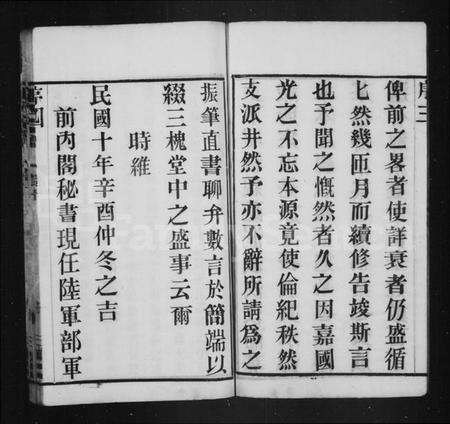 序三
俾前之畧者使詳衰者仍盛循
匕然幾匝月而續修告竣斯言
也予聞之慨然者久之因嘉國
光之不忘本源竟使倫紀秩然
支派井然予亦不辭所請爲之
振筆直書聊弁數言於簡端以
綴三槐堂中之盛事云爾
時維
民國十年辛酉仲冬之吉
前內閣秘書現任陸軍部軍
序四